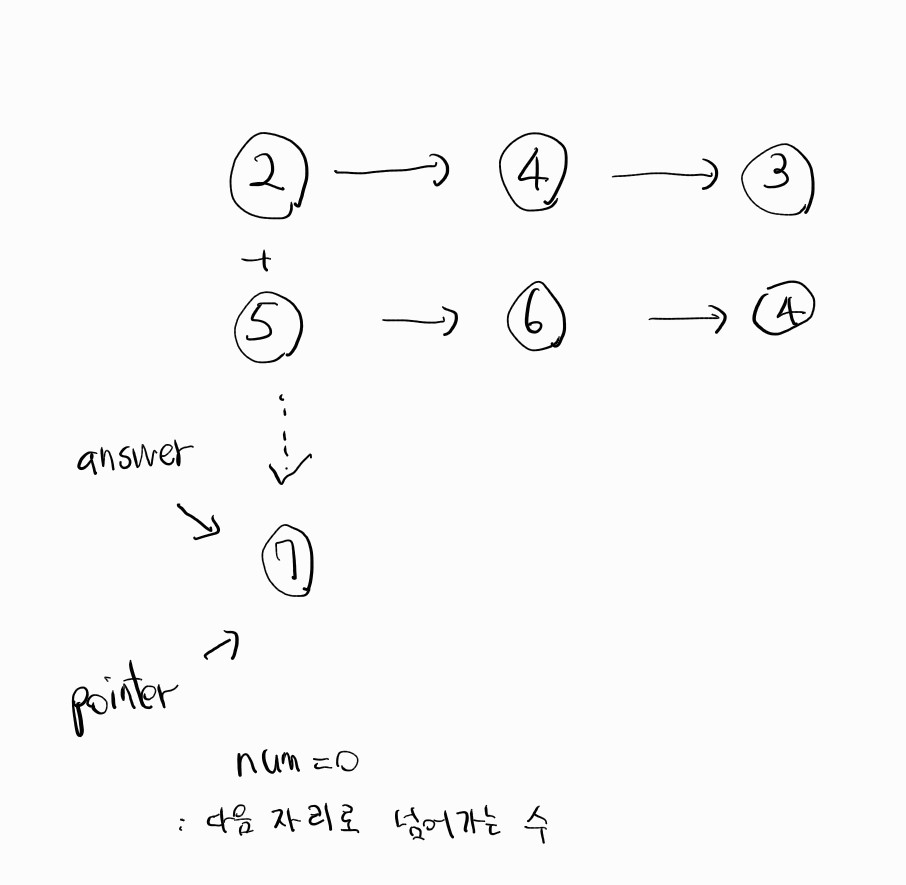 2 → 4 → 3
+
5 → 6 → 4
answer
7
pointer
num=0
: 다음 자리로 넘어가는 수